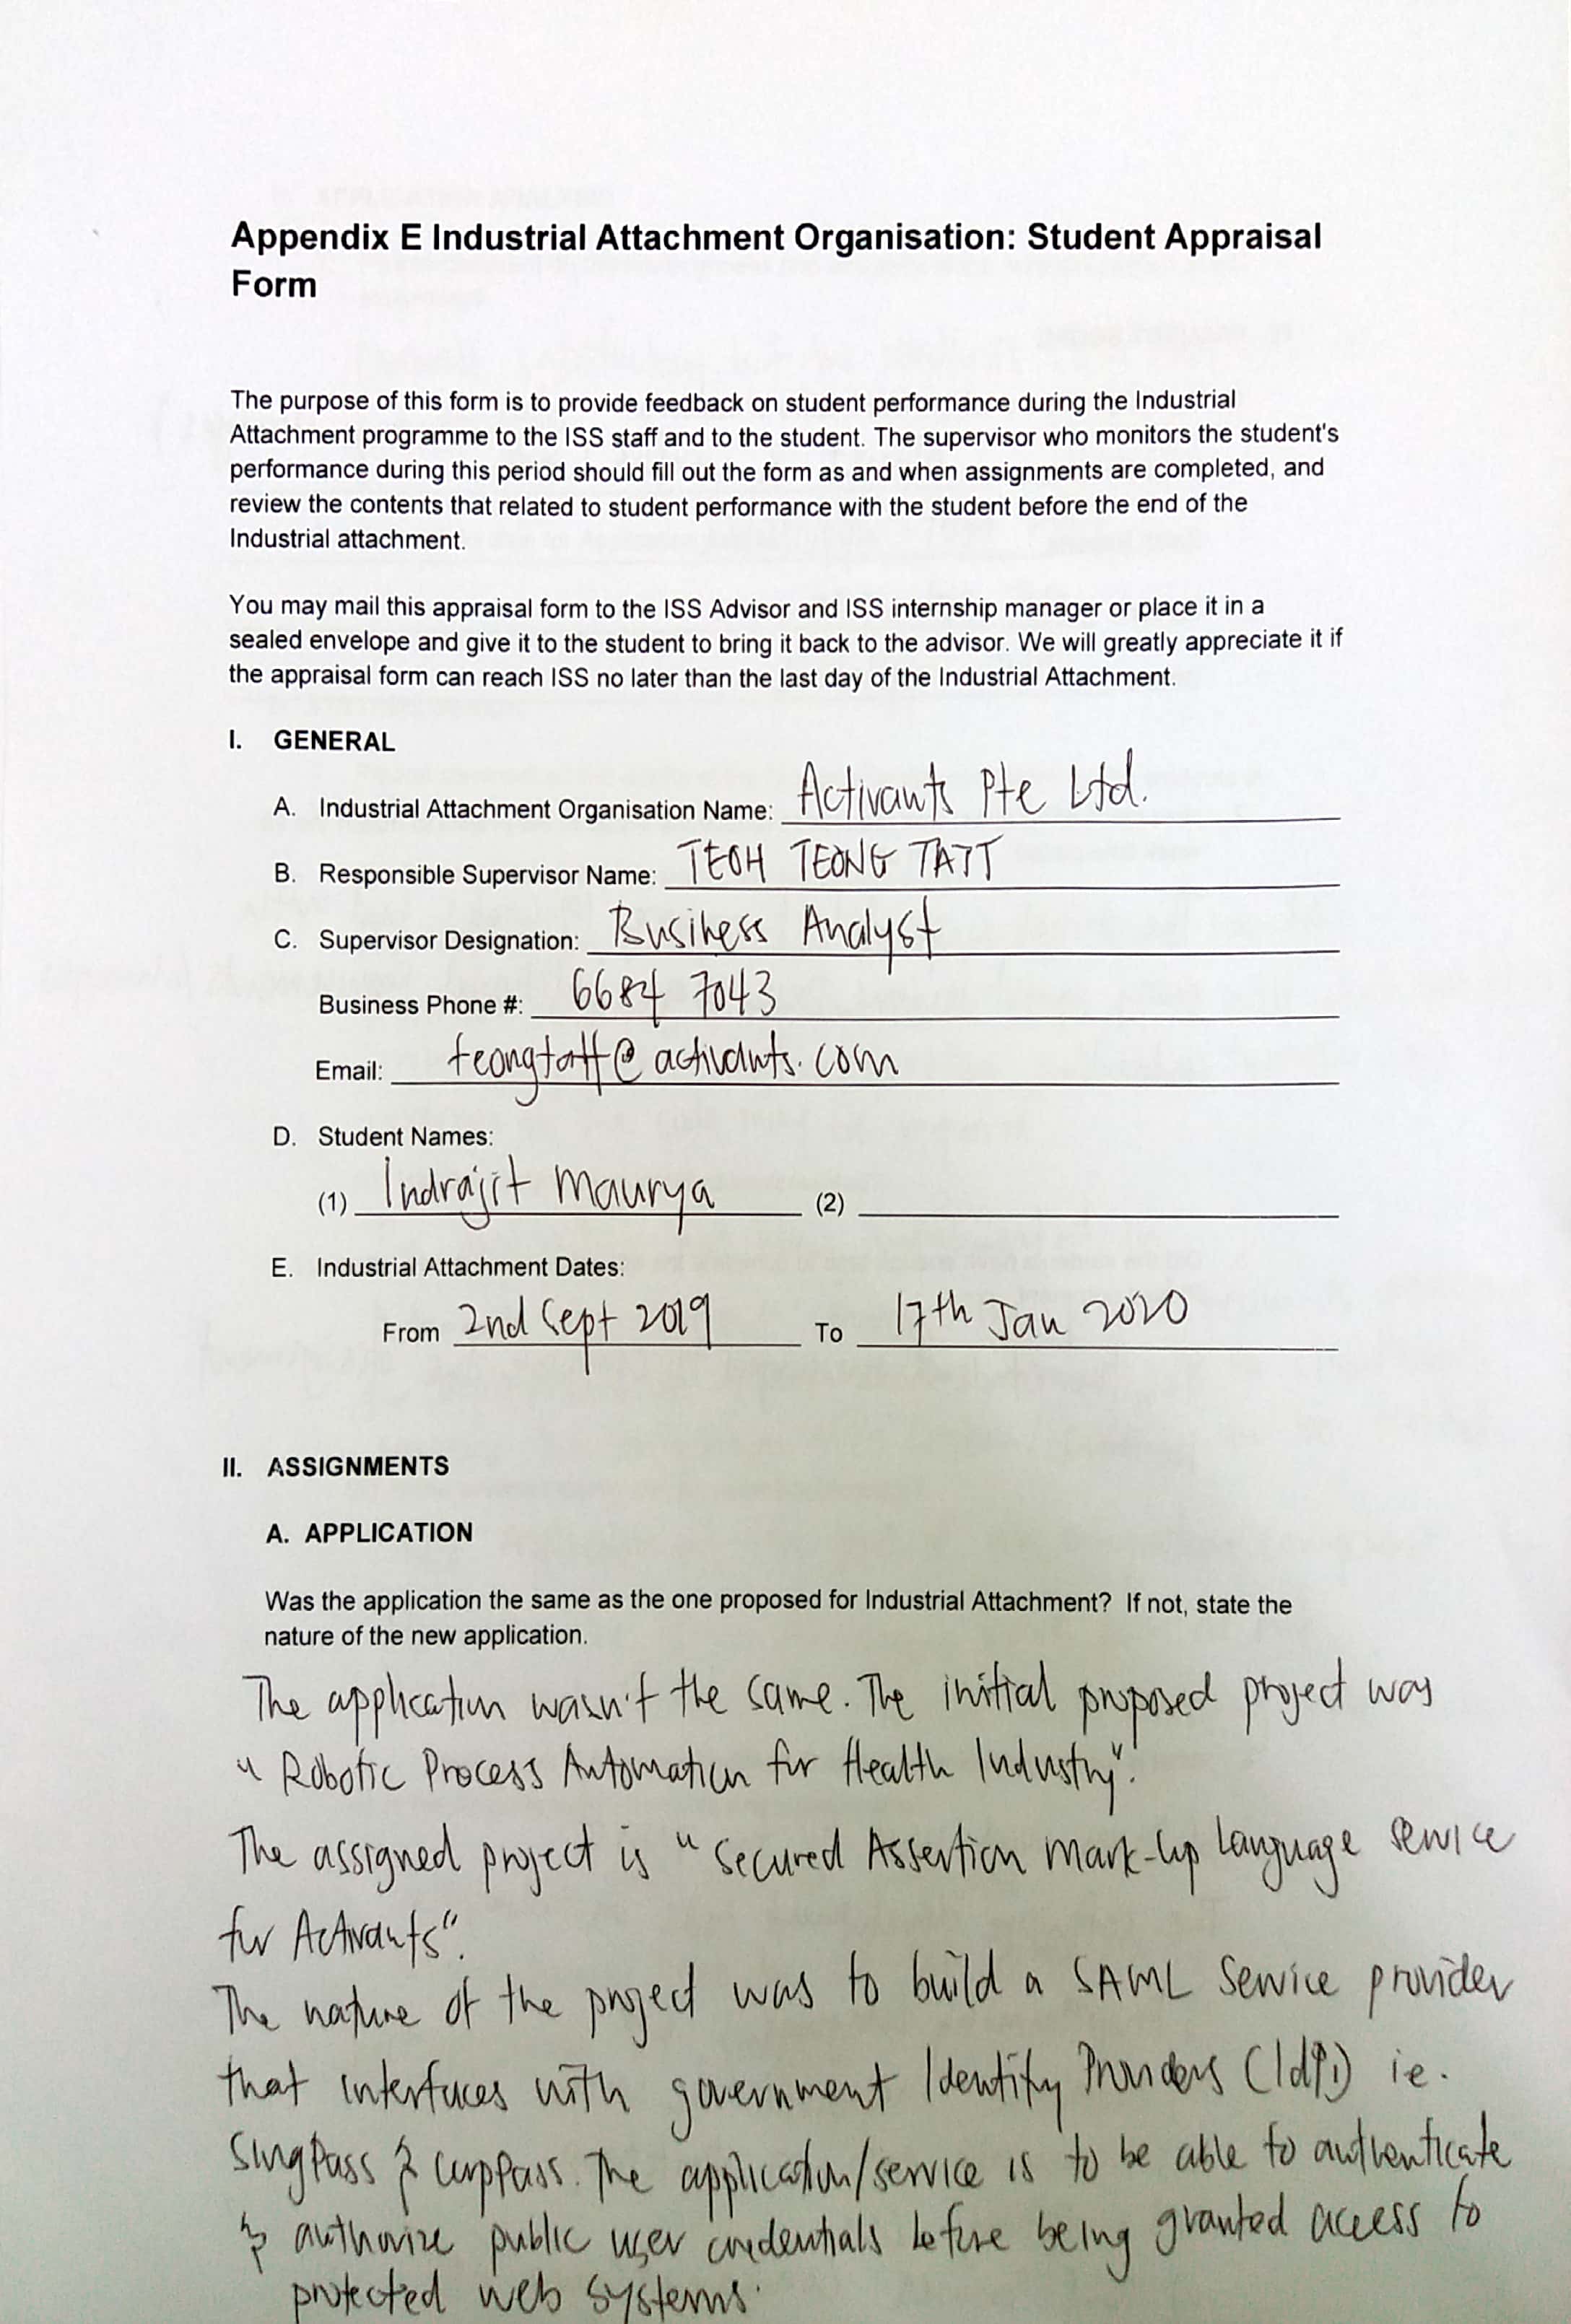 Appendix E Industrial Attachment Organisation: Student Appraisal
Form
The purpose of this form is to provide feedback on student performance during the Industrial
Attachment programme to the ISS staff and to the student. The supervisor who monitors the student's
performance during this period should fill out the form as and when assignments are completed, and
review the contents that related to student performance with the student before the end of the
Industrial attachment.
You may mail this appraisal form to the ISS Advisor and ISS internship manager or place it in a
sealed envelope and give it to the student to bring it back to the advisor. We will greatly appreciate it if
the appraisal form can reach ISS no later than the last day of the Industrial Attachment.
I. GENERAL
A. Industrial Attachment Organisation Name: Activants Pte Ltd.
B. Responsible Supervisor Name: TEOH TEONG TATT
C. Supervisor Designation: Business Analyst
Business Phone #: 6684 7043
Email: teongtatt@activants.com
D. Student Names:
(1) Indrajit Maurya (2)
E. Industrial Attachment Dates:
From 2nd Sept 2019 To 17th Jan 2020
II. ASSIGNMENTS
A. APPLICATION
Was the application the same as the one proposed for Industrial Attachment? If not, state the
nature of the new application.
The application wasn't the same. The initial proposed project was
"Robotic Process Automation for Health Industry".
The assigned project is "Secured Assertion Mark-Up Language Service
for Activants".
The nature of the project was to build a SAML Service provider
that interfaces with government Identity Providers (IdPs) ie.
SingPass & CorpPass. The application/service is to be able to authenticate
& authorize public user credentials before being granted access to
protected web systems.